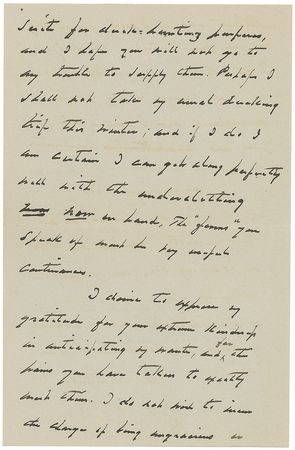 suits for duck-hunting purposes,
and I hope you will not go to
any trouble to supply them. Perhaps I
shall not take my usual ducking
trip this winter; and if I do I
am certain I can get along perfectly
well with the underclothing
now on hand, The "forms" you
speak of must be very useful
contrivances.
I desire to express my
gratitude for your extreme kindness
in anticipating my wants, and for the
pains you have taken to exactly
meet them. I do not wish to incur
the charge of being ungracious or